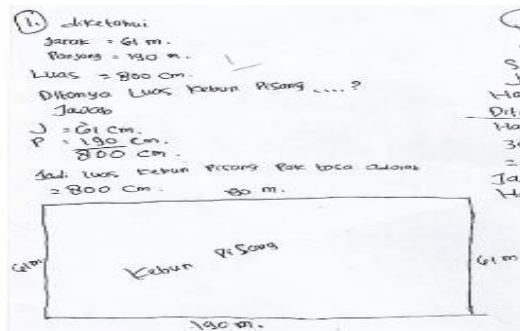 1. diketahui
Jarak = 61 m.
Panjang = 190 m.
Luas = 800 cm.
Ditanya Luas kebun Pisang ....?
Jawab
J = 61 cm.
P = 190 cm.
800 cm.
Jadi luas kebun Pisang Pak adalah
= 800 cm.
m.
61 m
Kebun Pisang
61 m
190 m.